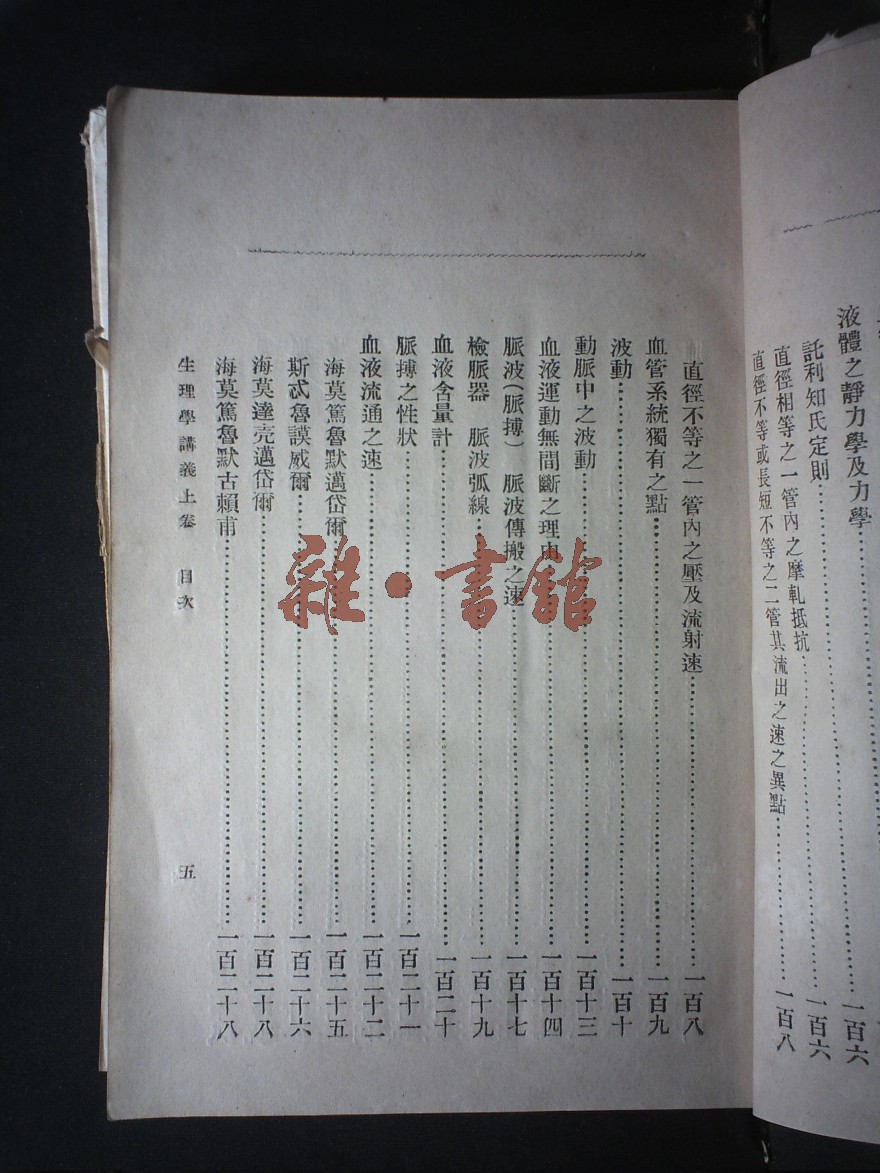 液體之靜力學及力學……一百六
託利知氏定則……一百六
直徑相等之一管內之摩軋抵抗
直徑不等或長短不等之二管其流出之速之異點……一百八
直徑不等之一管內之壓及流射速……一百八
血管系統獨有之點……一百九
波動……一百十
動脈中之波動……一百十三
血液運動無間斷之理由……一百十四
脈波(脈搏) 脈波傳搬之速……一百十七
檢脈器 脈波弧線……一百十九
血液含量計……一百二十
脈搏之性狀……一百二十一
血液流通之速……一百二十二
海莫篤魯默邁岱爾……一百二十五
斯忒魯謨威爾……一百二十六
海莫達亮邁岱爾……一百二十八
海莫篤魯默古賴甫……一百二十八
生理學講義上卷 目次 五
雜·書館